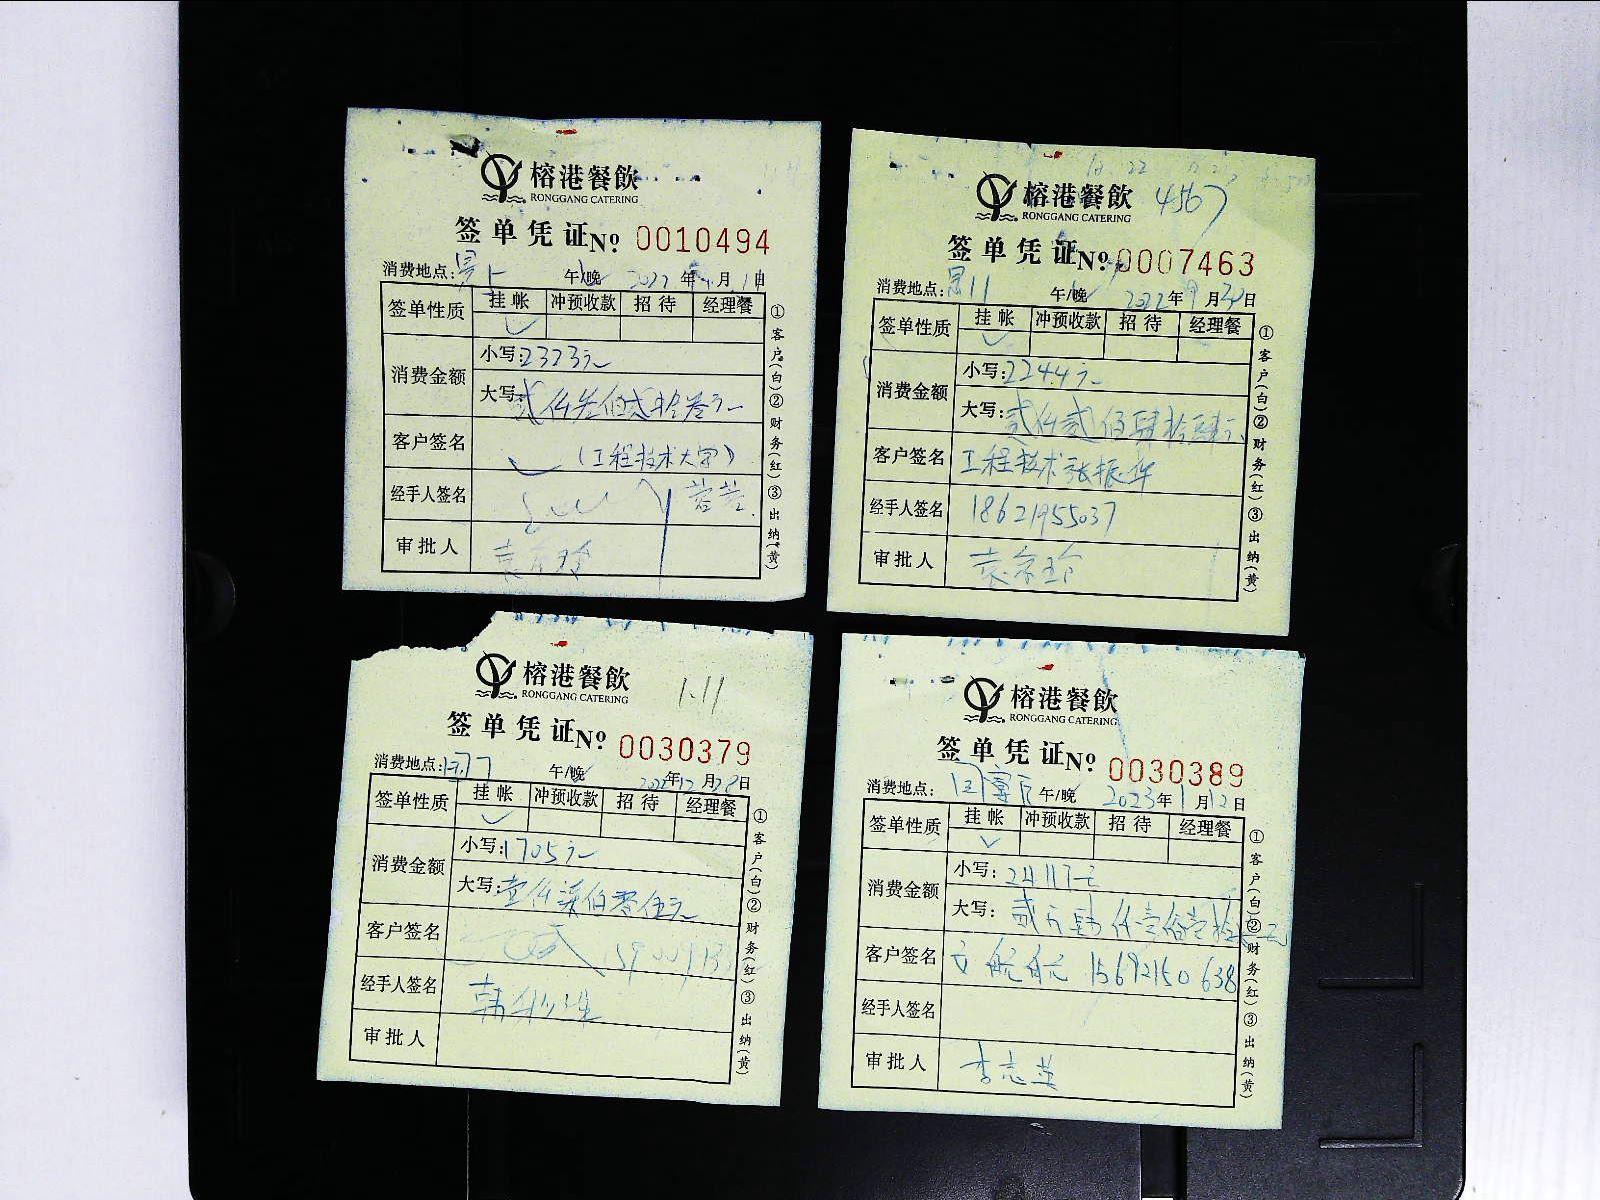 榕港餐飲
RONGGANG CATERING
签单凭证 Nº 0010494
消费地点: 午/晚 2022年 月 日
签单性质 挂帐 冲预收款 招待 经理餐
消费金额 小写:2323元
大写:贰仟叁佰贰拾叁元
客户签名 (工程技术大学)
经手人签名
审批人
①客户(白)②财务(红)③出纳(黄)
榕港餐飲
RONGGANG CATERING
4567
签单凭证 Nº 0007463
消费地点: 午/晚 2022年9月 日
签单性质 挂帐 冲预收款 招待 经理餐
消费金额 小写:2244元
大写:贰仟贰佰肆拾肆元
客户签名 工程技术张振华
经手人签名 18621955037
审批人
①客户(白)②财务(红)③出纳(黄)
榕港餐飲
RONGGANG CATERING
1.11
签单凭证 Nº 0030379
消费地点: 午/晚 2022年12月28日
签单性质 挂帐 冲预收款 招待 经理餐
消费金额 小写:1705元
大写:壹仟柒佰零伍元
客户签名
经手人签名
审批人
①客户(白)②财务(红)③出纳(黄)
榕港餐飲
RONGGANG CATERING
签单凭证 Nº 0030389
消费地点: 午/晚 2023年1月12日
签单性质 挂帐 冲预收款 招待 经理餐
消费金额 小写:24117元
大写:贰万肆仟壹佰壹拾柒元
客户签名 文航航 15692150638
经手人签名
审批人 李志英
①客户(白)②财务(红)③出纳(黄)